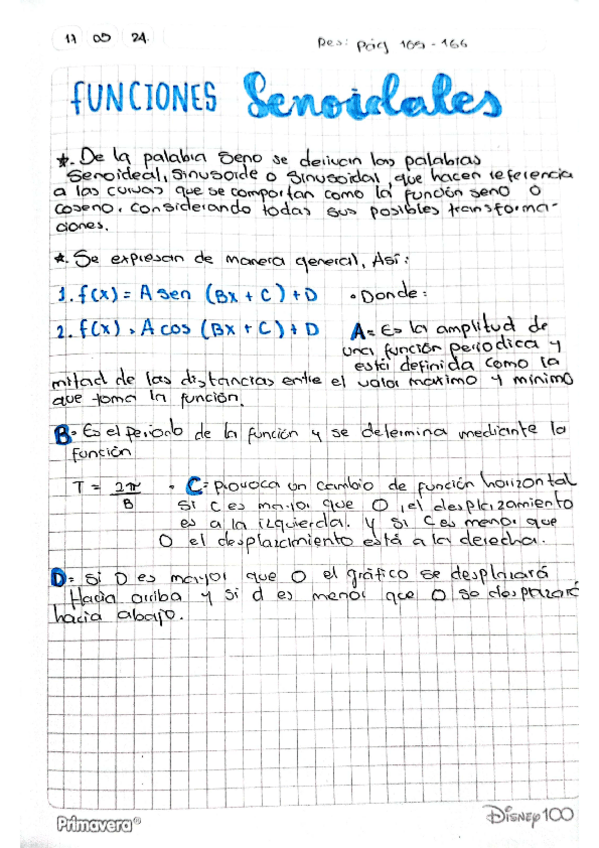 17 05 24.
Des: Pág 165 - 166
FUNCIONES Senoidales
*. De la palabra Seno se derivan las palabras
Senoideal, Sinusoide o Sinusoidal, que hacen referencia
a las curvas que se comportan como la función seno o
coseno, considerando todas sus posibles transforma-
ciones.
*. Se expresan de manera general, Así:
1. f(x) = A sen (Bx + C) + D • Donde:
2. f(x) = A cos (Bx + C) + D A= Es la amplitud de
una función periodica y
está definida como la
mitad de las distancias entre el valor maximo y mínimo
que toma la función.
B= Es el periodo de la función y se determina mediante la
función
T = 2π/B • C= provoca un cambio de función horizontal
si C es mayor que 0, el desplazamiento
es a la izquierda. y si C es menor que
0 el desplazamiento está a la derecha.
D= si D es mayor que 0 el gráfico se desplazará
Hacia arriba y si d es menor que 0 se desplazará
hacia abajo.
Primavera®
DISNEY100